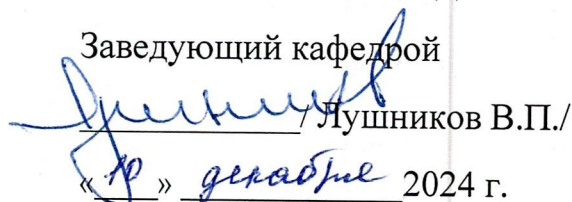 Заведующий кафедрой
/ Лушников В.П./
«10» декабря 2024 г.